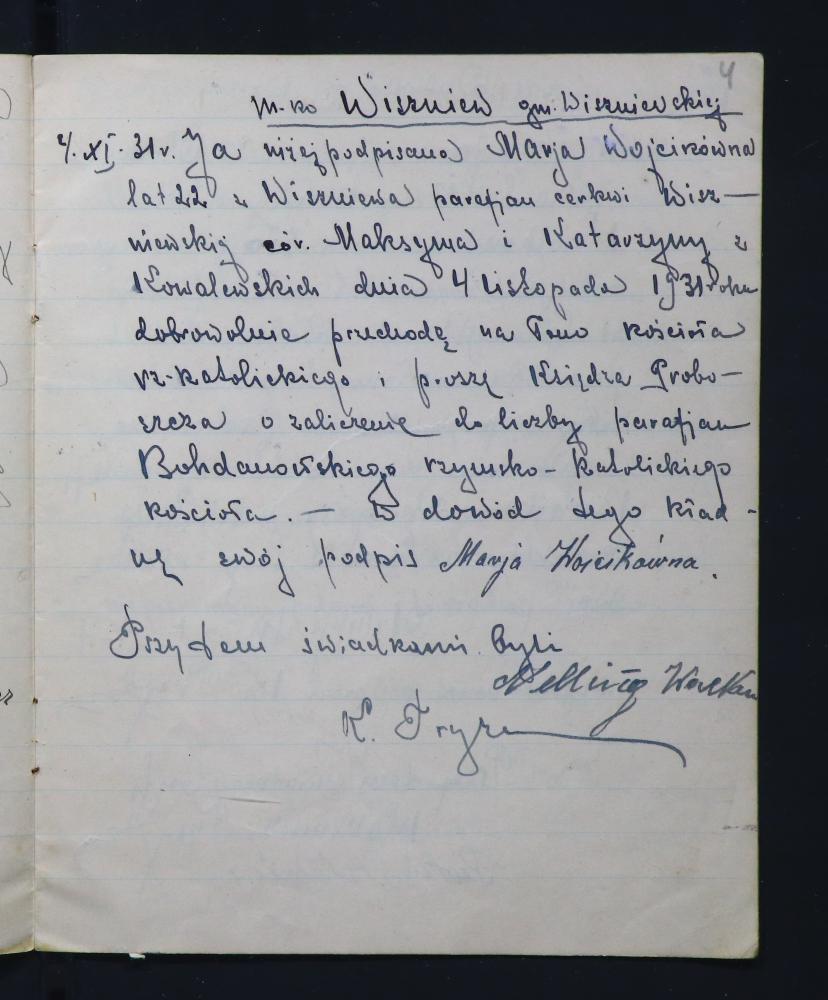 4
m-ko Wiszniew gm. Wiszniewskiej
4.XI.31r. Ja niżej podpisana Marja Wojcikówna
lat 22 z Wiszniewa parafjan cerkwi Wisz—
niewskiej cór. Maksyma i Katarzyny z
Kowalewskich dnia 4 listopada 1931 roku
dobrowolnie przechodzę na łono kościoła
rz-katolickiego i proszę Księdza Probo—
szcza o zaliczenie do liczby parafjan
Bohdanowskiego rzymsko-katolickiego
kościoła. — W dowód tego kład-
nę swój podpis Marja Wojcikówna.
Przytem świadkami byli
K.